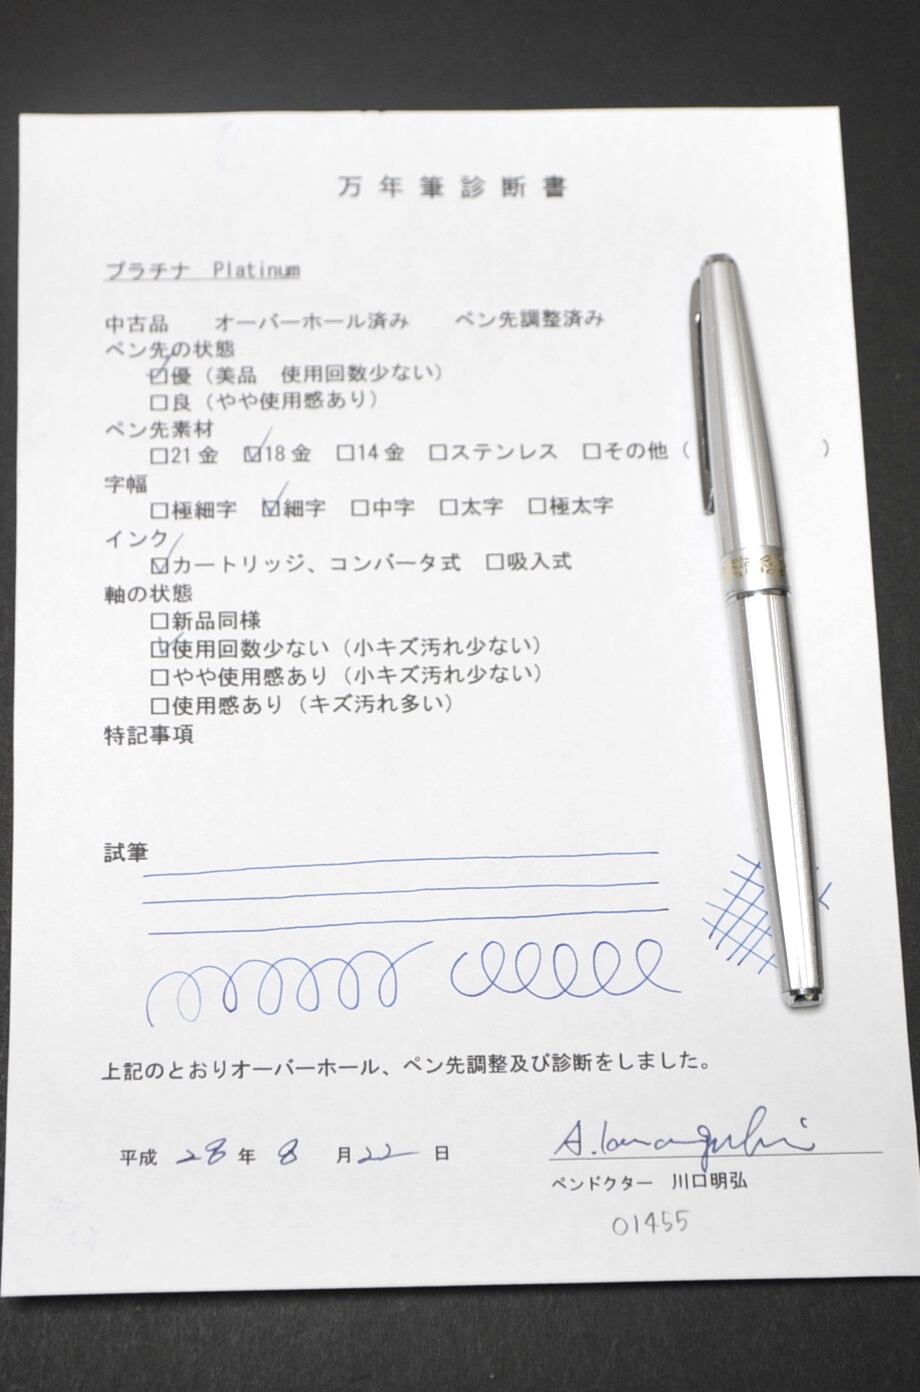 万年筆診断書
プラチナ Platinum
中古品 オーバーホール済み ペン先調整済み
ペン先の状態
☑優（美品 使用回数少ない）
□良（やや使用感あり）
ペン先素材
□21金 ☑18金 □14金 □ステンレス □その他（ ）
字幅
□極細字 ☑細字 □中字 □太字 □極太字
インク
☑カートリッジ、コンバータ式 □吸入式
軸の状態
□新品同様
☑使用回数少ない（小キズ汚れ少ない）
□やや使用感あり（小キズ汚れ少ない）
□使用感あり（キズ汚れ多い）
特記事項
試筆
上記のとおりオーバーホール、ペン先調整及び診断をしました。
平成 28 年 8 月 22 日
ペンドクター 川口明弘
01455